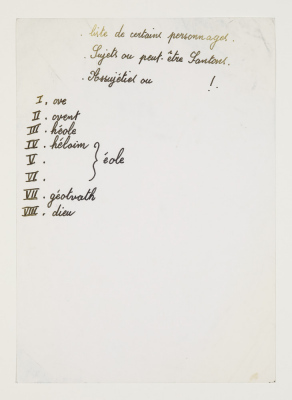 . liste de certains personnages.
. Sujets ou peut-être Santons.
. Assujétiet ou !.
I. ove
II. ovent
III. héole
IV. héloïm
V. éole
VI.
VII. géotvath
VIII. dieu